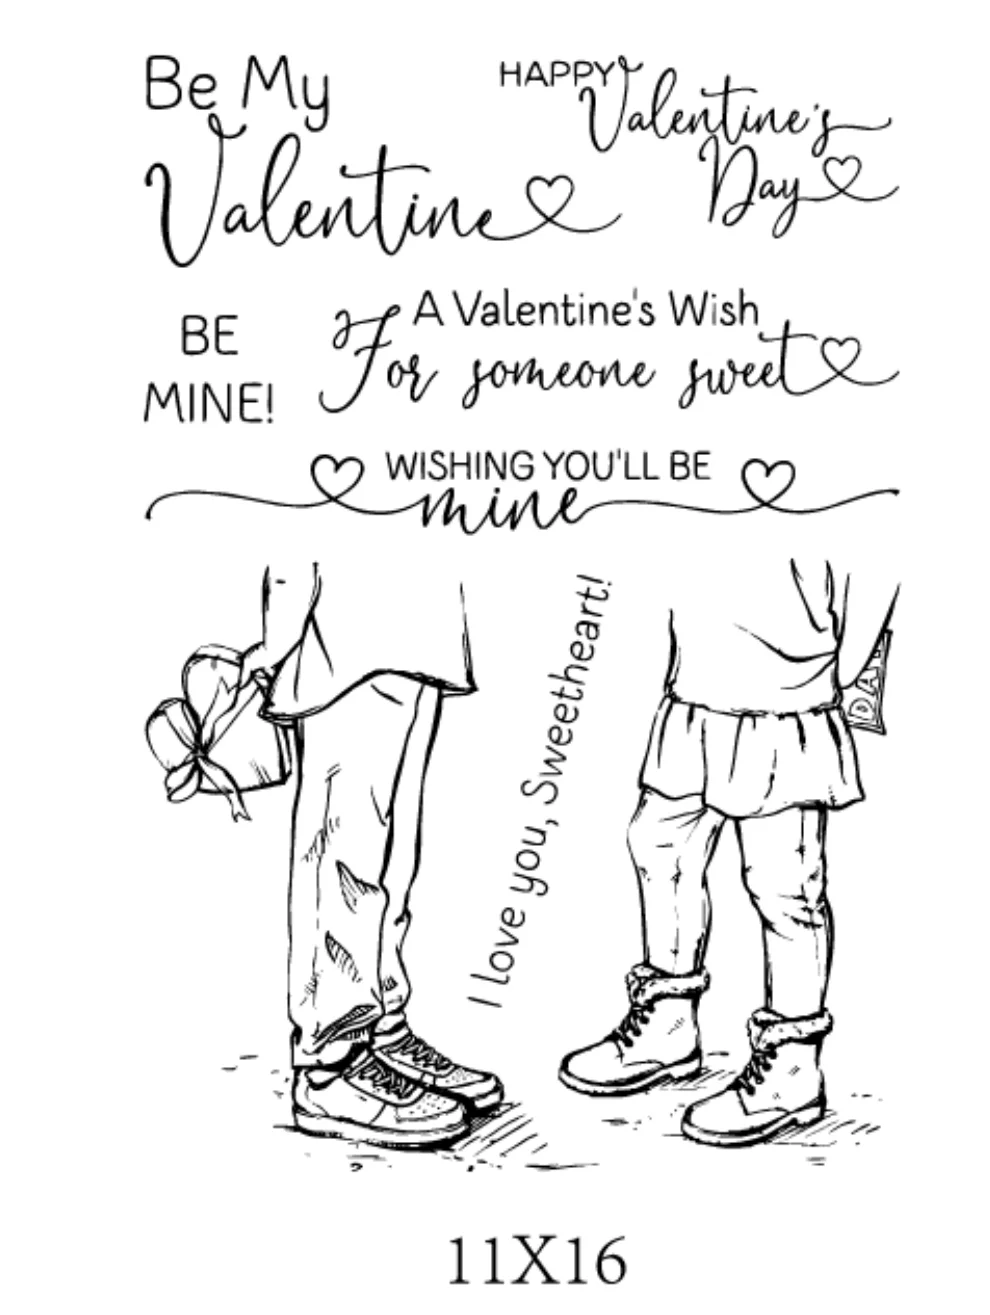 Be My
Valentine
HAPPY
Valentine's
Day
BE
MINE!
A Valentine's Wish
For someone sweet
WISHING YOU'LL BE
mine
I love you, Sweetheart!
DAD
11X16